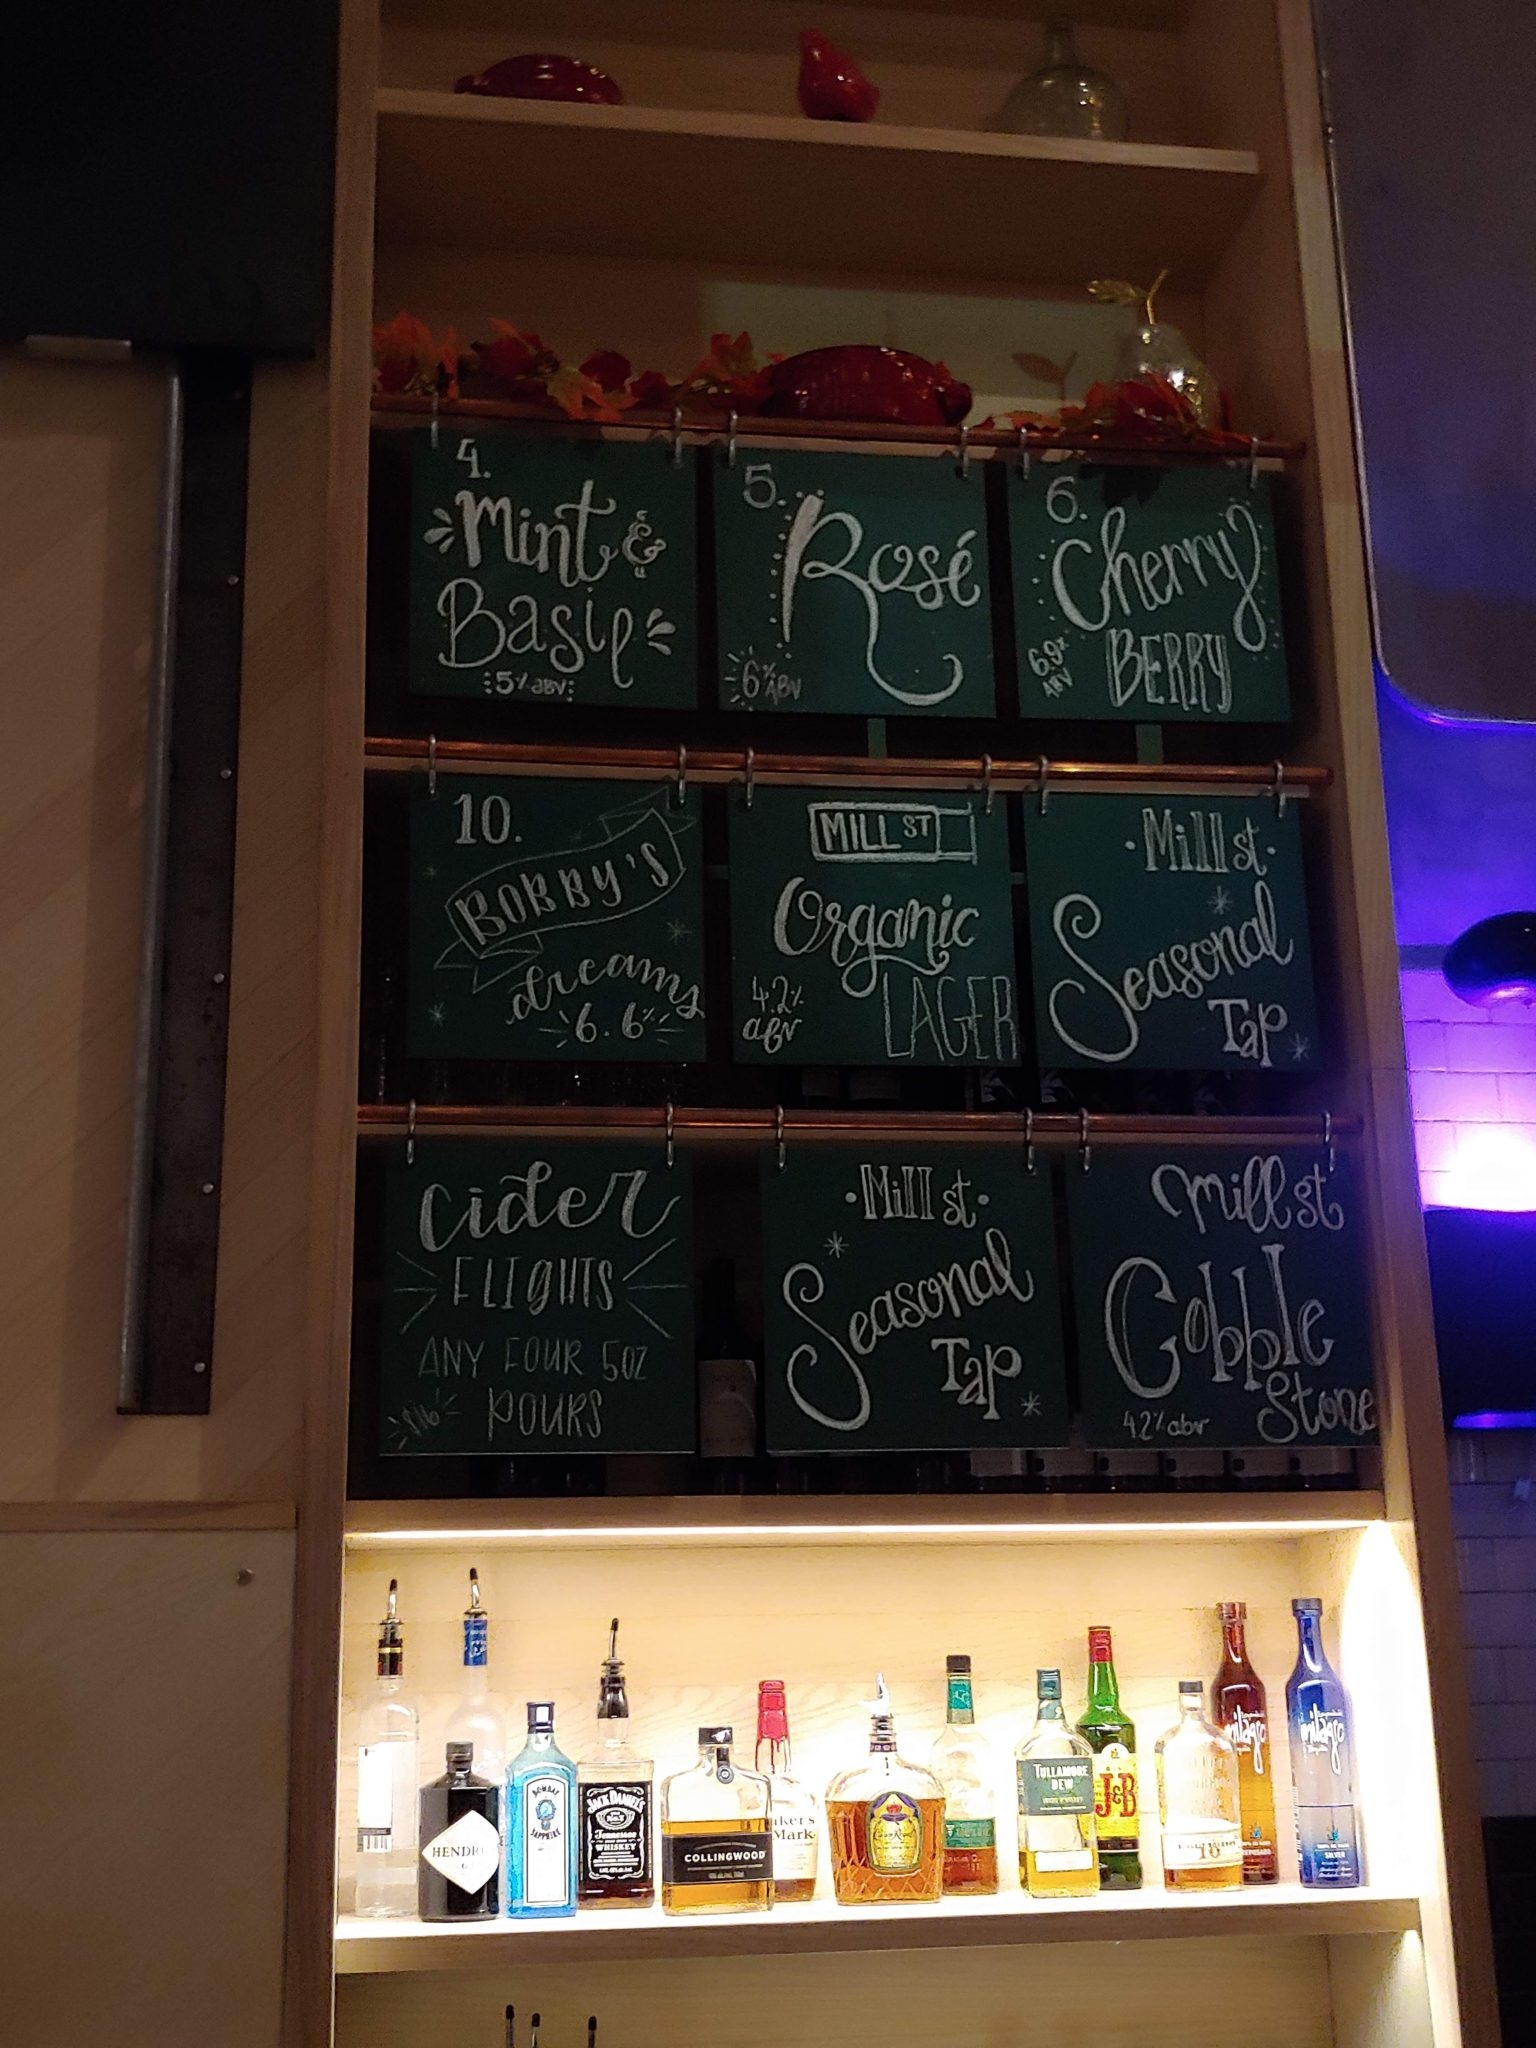 4.
Mint &
Basil
5% abv
5.
Rosé
6% ABV
6.
Cherry
BERRY
6.9%
ABV
10.
BOBBY'S
dreams
6.6%
MILL ST
Organic
LAGER
4.2%
abv
Mill st
Seasonal
Tap
Cider
FLIGHTS
ANY FOUR 5oz
POURS
$16
Mill st
Seasonal
Tap
Mill st
Cobble
Stone
4.2% abv
HENDRI
BOMBAY
SAPPHIRE
JACK DANIEL'S
Tennessee
WHISKEY
COLLINGWOOD
aker's
Mark
TULLAMORE
DEW
J&B
10
milagro
milagro
SILVER